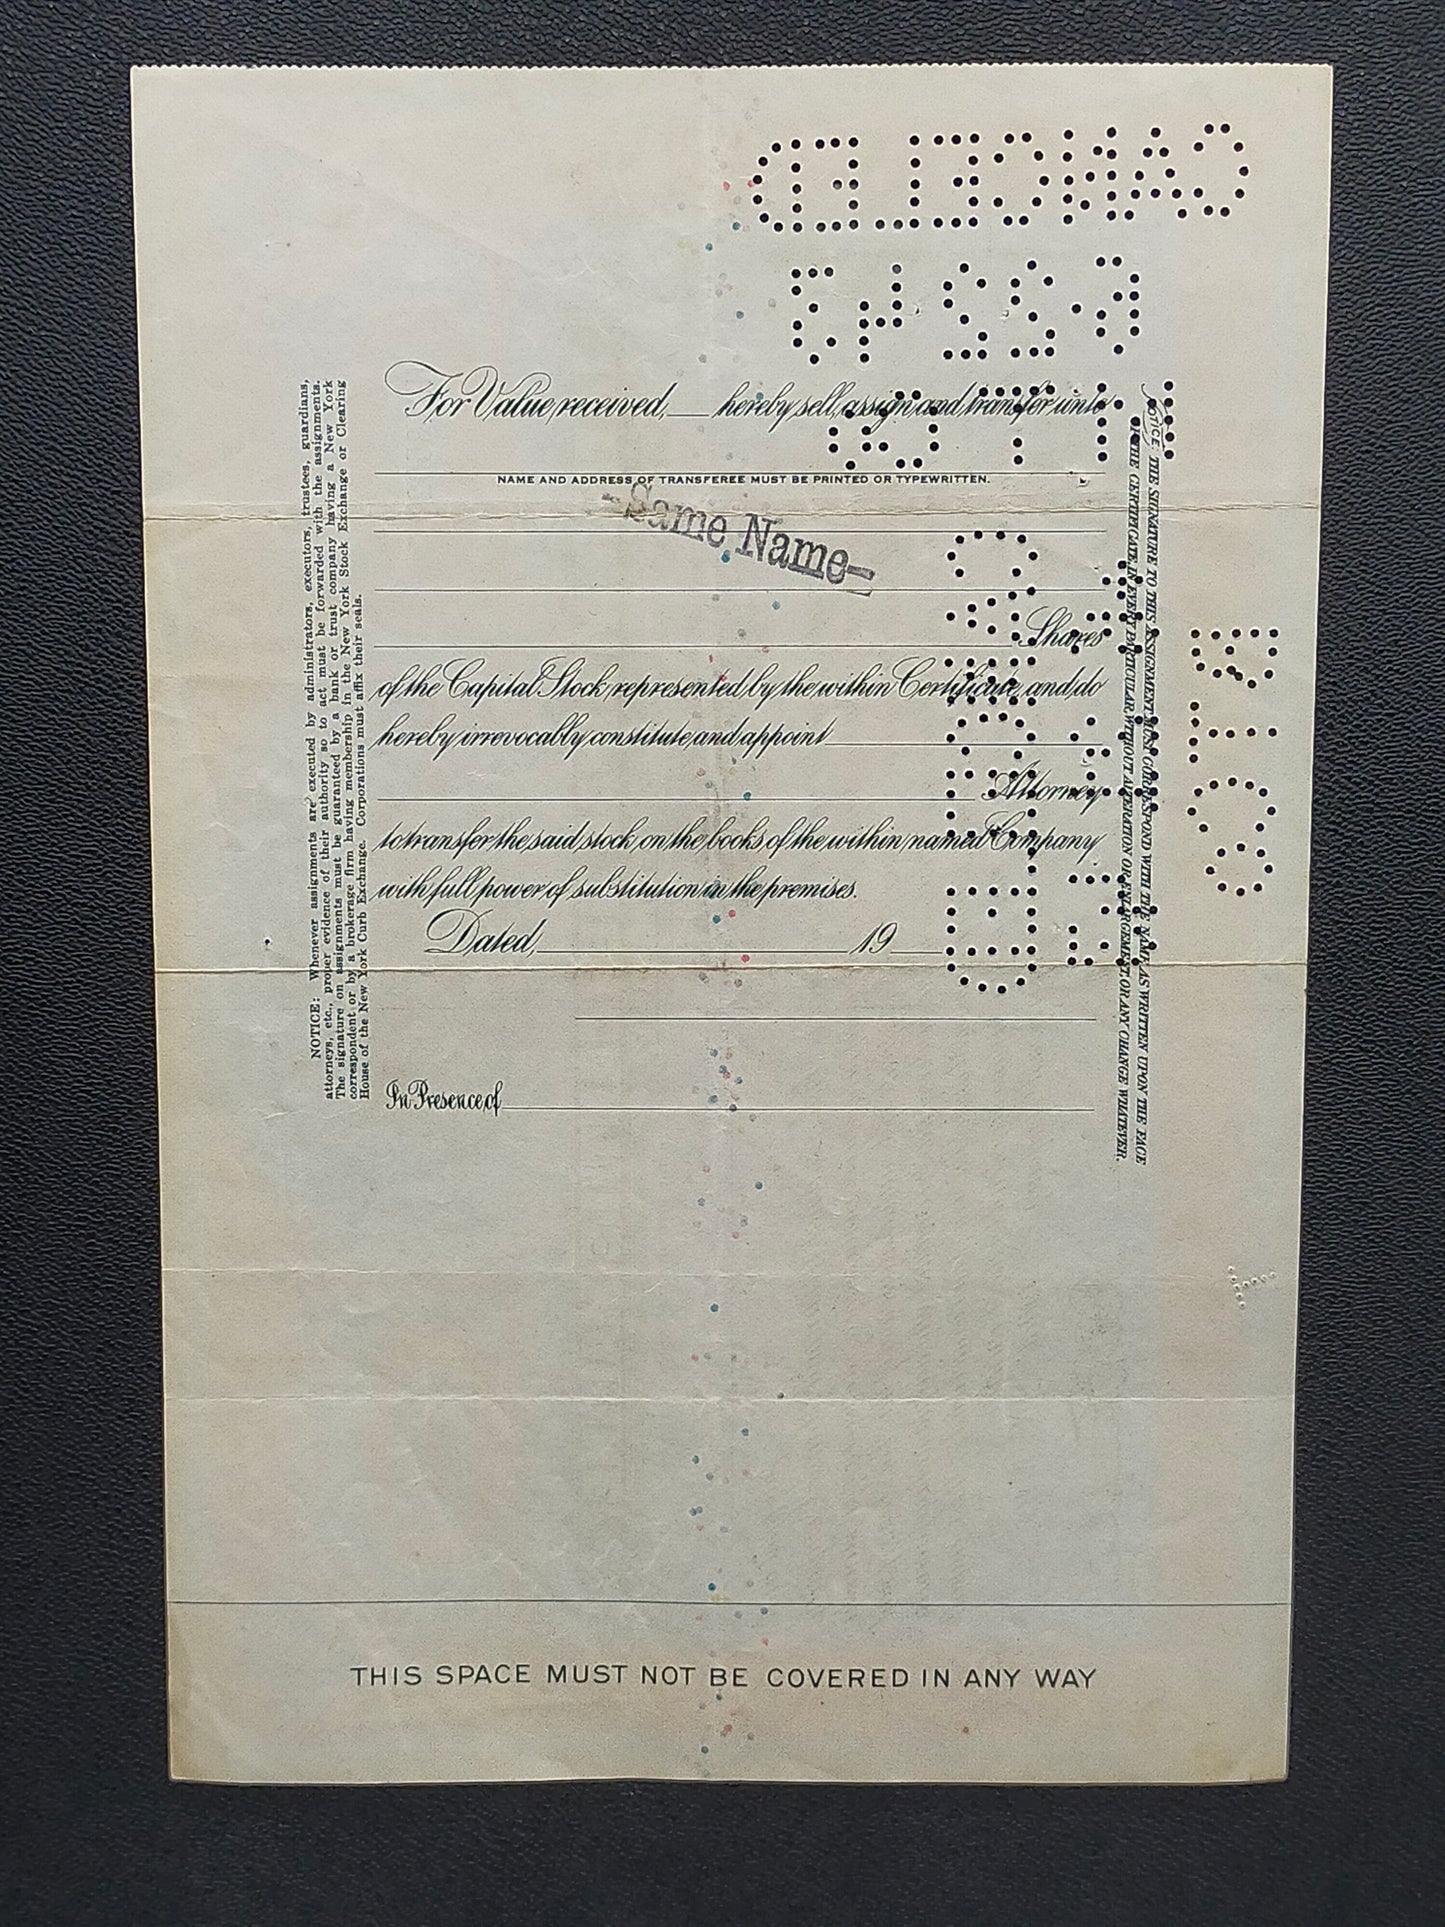 CANCELED
For Value received, ___ hereby sell, assign and transfer unto
NAME AND ADDRESS OF TRANSFEREE MUST BE PRINTED OR TYPEWRITTEN.
-Same Name-
Shares
of the Capital Stock represented by the within Certificate, and do
hereby irrevocably constitute and appoint
Attorney
to transfer the said stock on the books of the within named Company
with full power of substitution in the premises.
Dated, 19
In Presence of
NOTICE: Whenever assignments are executed by administrators, executors, trustees, guardians,
attorneys, etc., proper evidence of their authority so to act must be forwarded with the assignments.
The signature on assignments must be guaranteed by a bank or trust company having a New York
correspondent or by a brokerage firm having membership in the New York Stock Exchange or Clearing
House of the New York Curb Exchange. Corporations must affix their seals.
NOTICE: THE SIGNATURE TO THIS ASSIGNMENT MUST CORRESPOND WITH THE NAME AS WRITTEN UPON THE FACE
OF THE CERTIFICATE, IN EVERY PARTICULAR, WITHOUT ALTERATION OR ENLARGEMENT, OR ANY CHANGE WHATEVER.
CANCELED
THIS SPACE MUST NOT BE COVERED IN ANY WAY